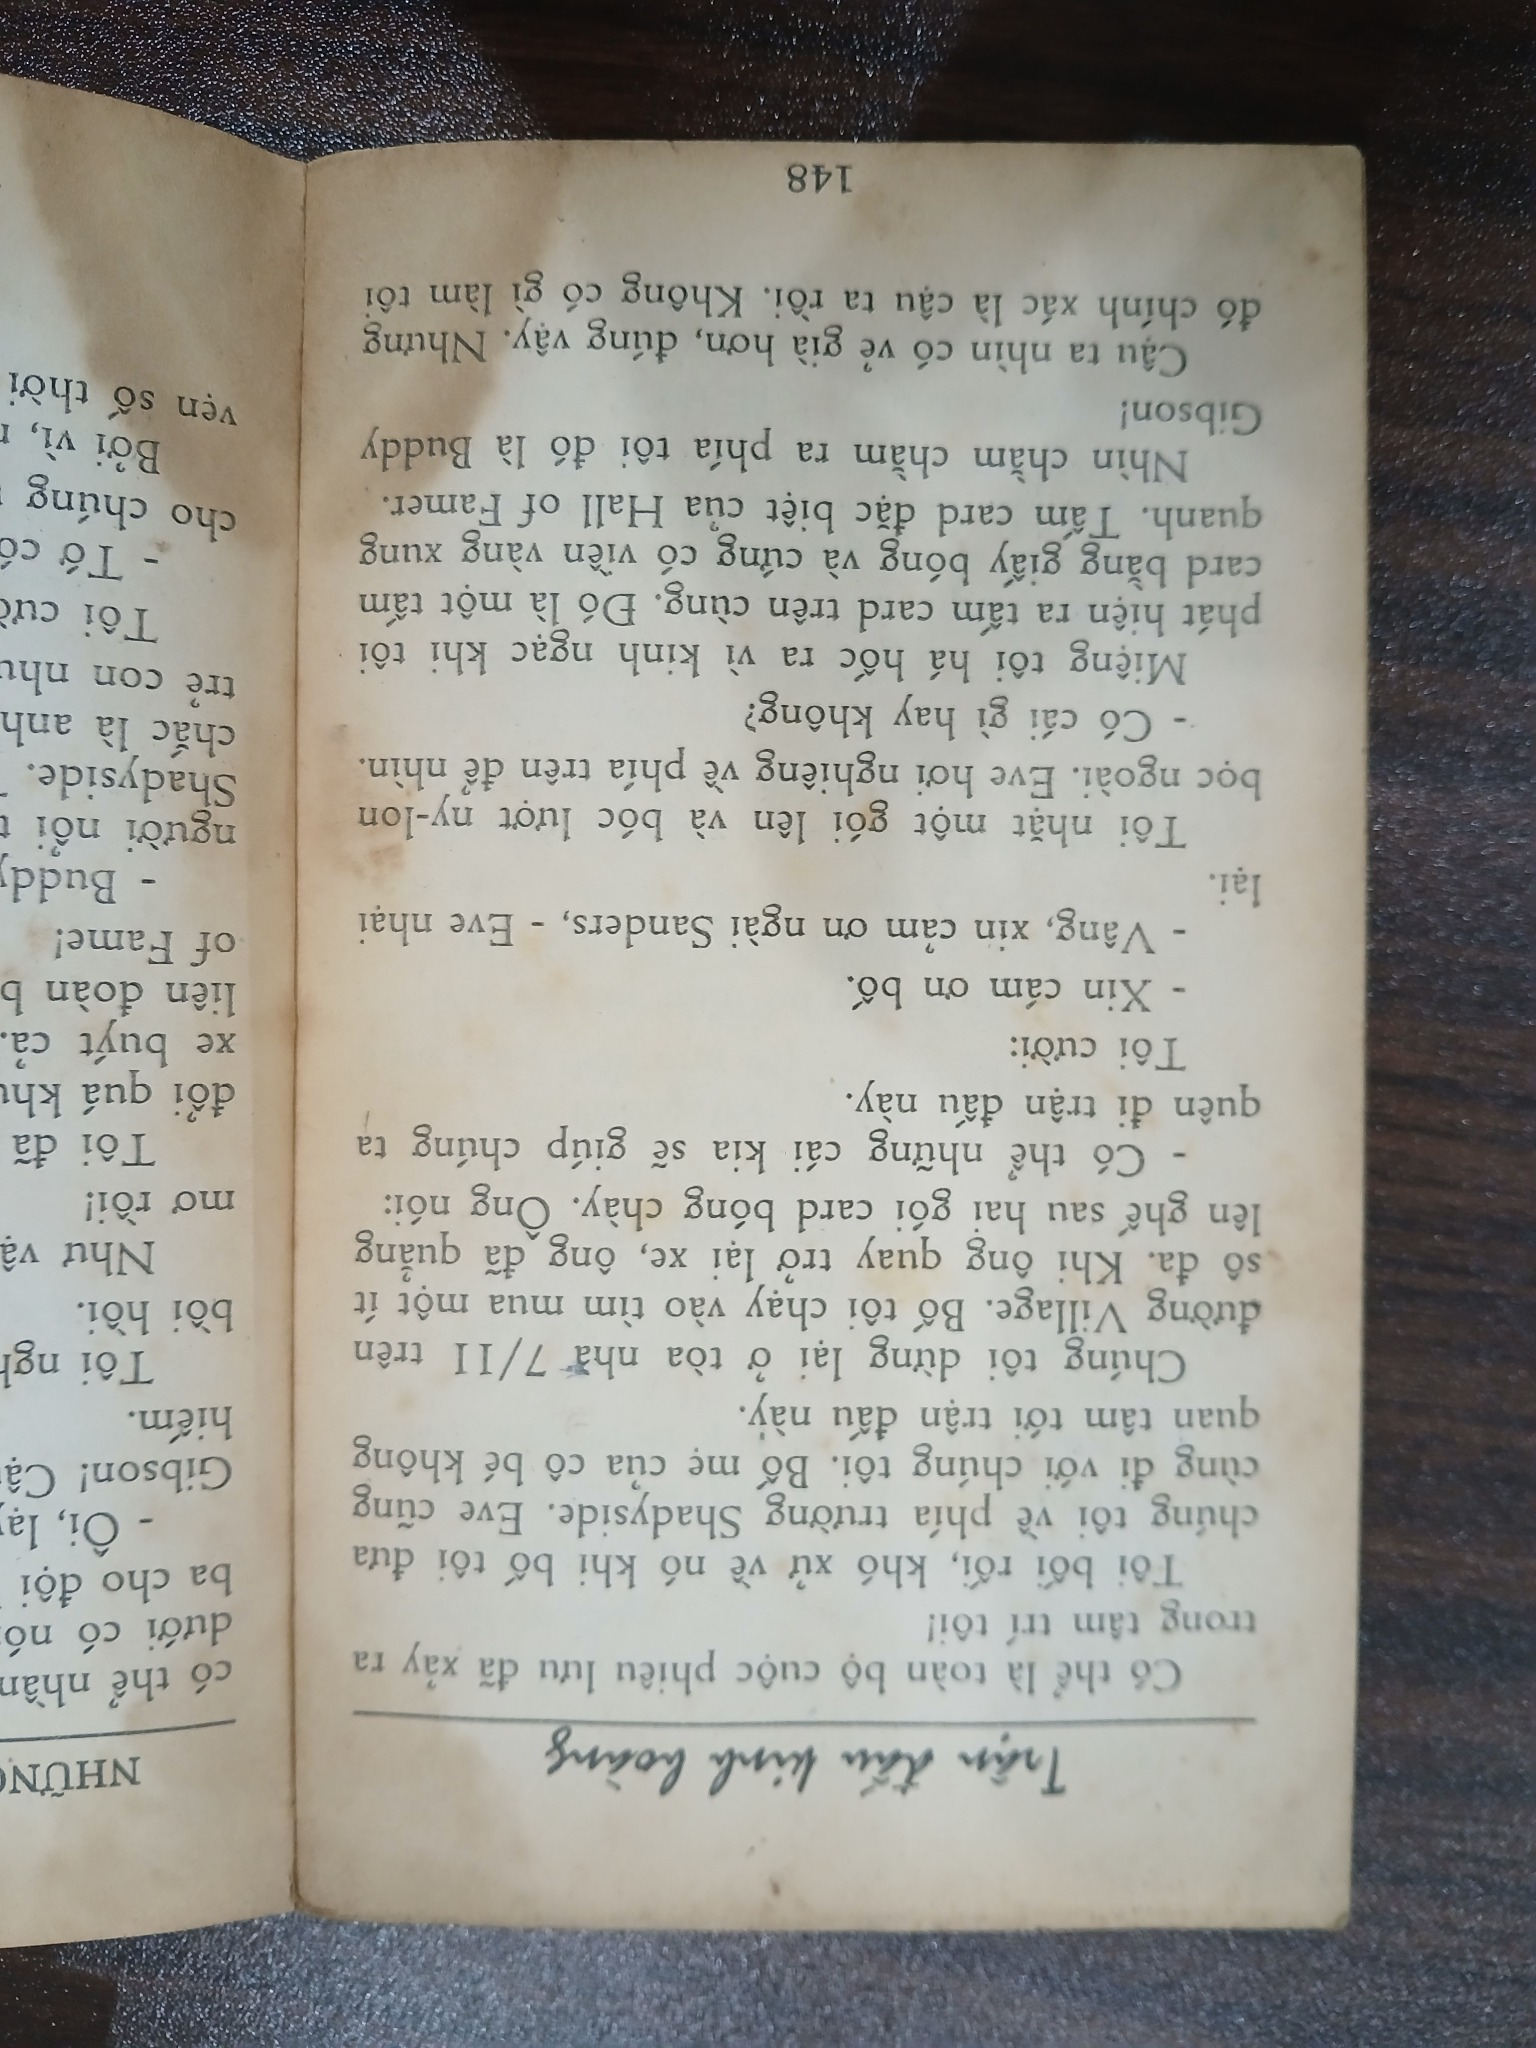 Trận đấu kinh hoàng
Có thể là toàn bộ cuộc phiêu lưu đã xảy ra
trong tâm trí tôi!
Tôi bối rối, khó xử về nó khi bố tôi đưa
chúng tôi về phía trường Shadyside. Eve cũng
cùng đi với chúng tôi. Bố mẹ của cô bé không
quan tâm tới trận đấu này.
Chúng tôi dừng lại ở tòa nhà 7/11 trên
đường Village. Bố tôi chạy vào tìm mua một ít
sô đa. Khi ông quay trở lại xe, ông đã quẳng
lên ghế sau hai gói card bóng chày. Ông nói:
- Có thể những cái kia sẽ giúp chúng ta
quên đi trận đấu này.
Tôi cười:
- Xin cám ơn bố.
- Vâng, xin cảm ơn ngài Sanders, - Eve nhại
lại.
Tôi nhặt một gói lên và bóc lượt ny-lon
bọc ngoài. Eve hơi nghiêng về phía trên để nhìn.
- Có cái gì hay không?
Miệng tôi há hốc ra vì kinh ngạc khi tôi
phát hiện ra tấm card trên cùng. Đó là một tấm
card bằng giấy bóng và cứng có viền vàng xung
quanh. Tấm card đặc biệt của Hall of Famer.
Nhìn chằm chằm ra phía tôi đó là Buddy
Gibson!
Cậu ta nhìn có vẻ già hơn, đúng vậy. Nhưng
đó chính xác là cậu ta rồi. Không có gì làm tôi
148
có thể
dưới có
ba cho đội
- Ôi,
Gibson!
hiếm.
Tôi
bồi hồi.
Như
mơ rồi!
Tôi đã
đổi quá
xe buýt cả.
liên đoàn
of Fame!
- Buddy
người nổi
Shadyside.
chắc là anh
trẻ con
Tôi
- Tớ
cho chúng
Bởi vì,
vẹn số thời